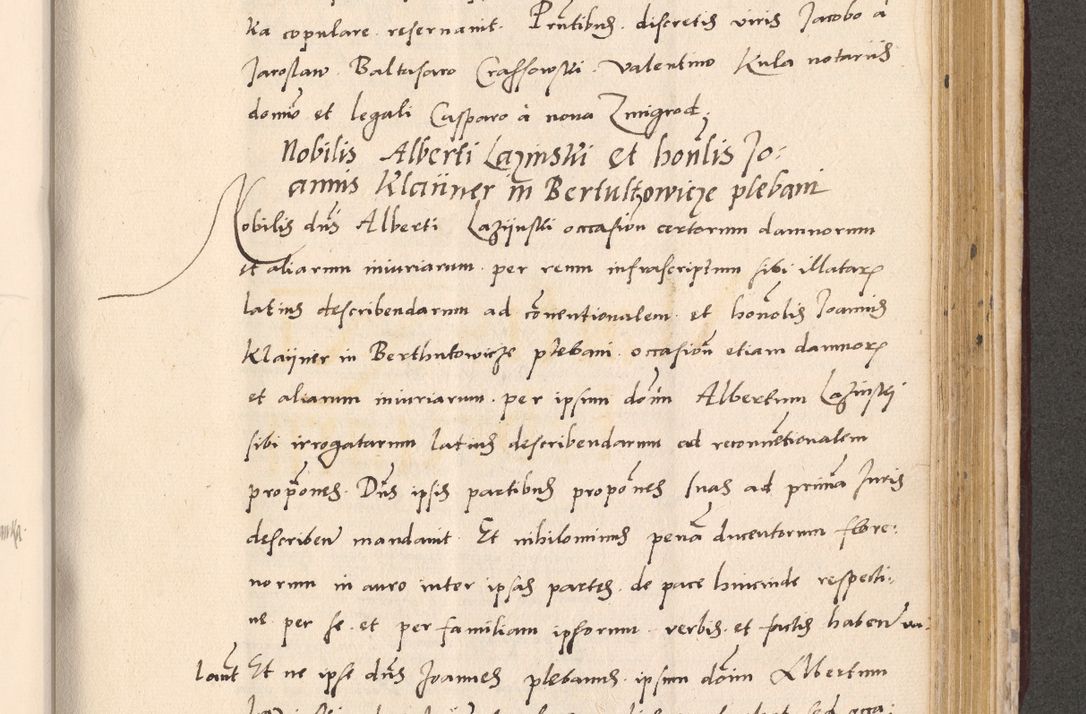 ka copulare reservavit. Pntibus discretis viris Jacobo à
Jaroslaw Baltasaro Crassowski Valentino Kula notariis
domo et legali Casparo à nova Zmigrod.
Nobilis Alberti Lazinski et honlis Jo:
annis Klaijner in Bertultzowicze plebani
Nobilis dni Alberti Lazijnski occasion certorum damnorum
et aliarum iniuriarum per reum infrascriptum sibi illatarum
latius describendarum ad conventionalem et honolis Joannis
Klaijner in Berthutowicze plebani occasion etiam damnorum
et aliarum iniuriarum per ipsum domin Albertum Lazinski
sibi irrogatarum latius describendarum ad reconventionalem
propones. Dns ipsis partibus propones suas ad prima Juris
describere mandavit. Et nihilominus pena ducentorum flore:
norum in auro inter ipsas partes de pace hincinde respecti:
ve per se et per familiam ipsorum verbis et factis habend
lavit Et ne ipse dns Joannes plebanus ipsum domin Albertum